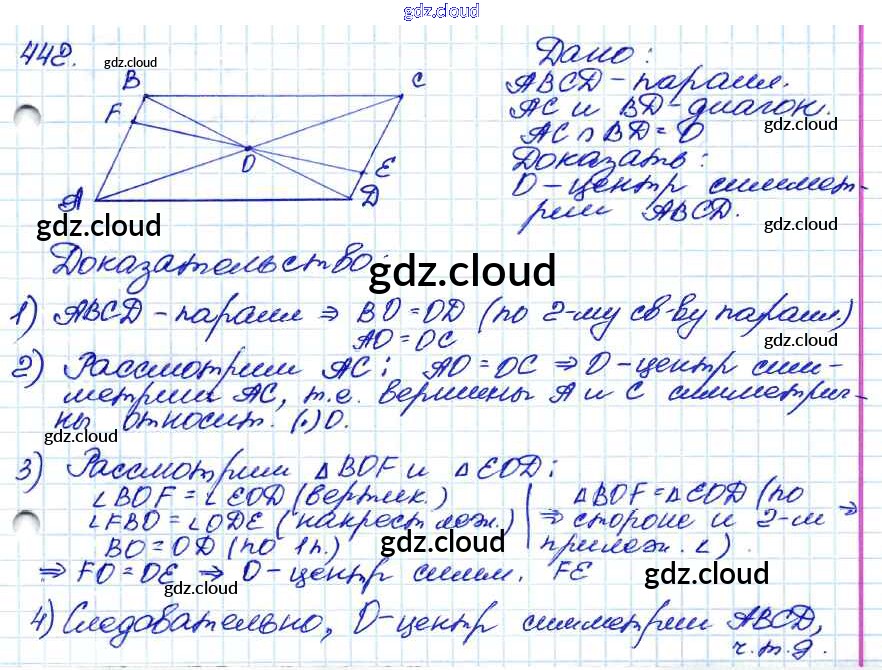 gdz.cloud
442.
gdz.cloud
B
C
F
O
E
A
D
gdz.cloud
Дано:
ABCD - паралл.
AC и BD - диагон.
gdz.cloud
AC ∩ BD = O
Доказать:
O - центр симмет-
рии ABCD.
gdz.cloud
Доказательство:
gdz.cloud
1) ABCD - паралл ⇒ BO = OD (по 2-му св-ву паралл.)
AO = OC
gdz.cloud
2) Рассмотрим AC: AO = OC ⇒ O - центр сим-
метрии AC, т.е. вершины A и C симметрич-
ны относит. (·) O.
gdz.cloud
3) Рассмотрим △BOF и △EOD:
∠BOF = ∠EOD (вертик.)
∠FBO = ∠ODE (накрест леж.)
BO = OD (по 1п.)
⇒ △BOF = △EOD (по
стороне и 2-м ⇒
прилеж. ∠)
gdz.cloud
⇒ FO = OE ⇒ O - центр симм. FE
gdz.cloud
4) Следовательно, O - центр симметрии ABCD,
ч.т.д.
gdz.cloud